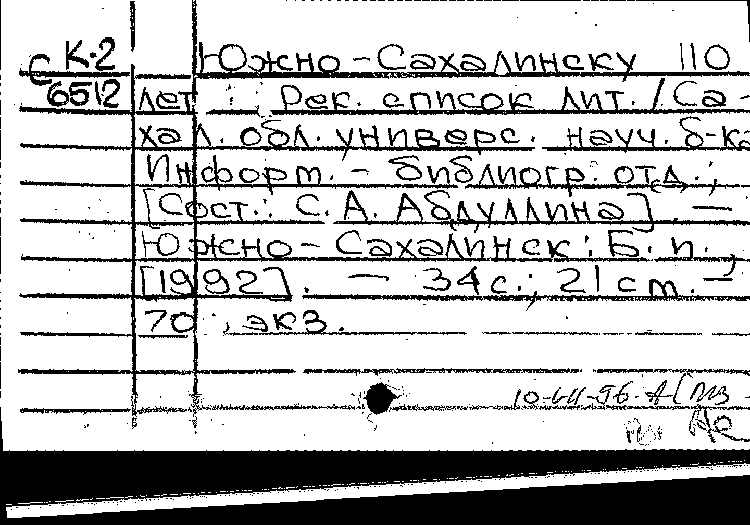 К-2 Южно-Сахалинску 110
С 6512 лет : Рек. список лит. / Са-
хал. обл. универс. науч. б-ка
Информ. - библиогр. отд.;
[Сост.: С. А. Абдуллина]. —
Южно-Сахалинск: Б. и.,
[1992]. — 34 с.; 21 cm. —
70 экз.